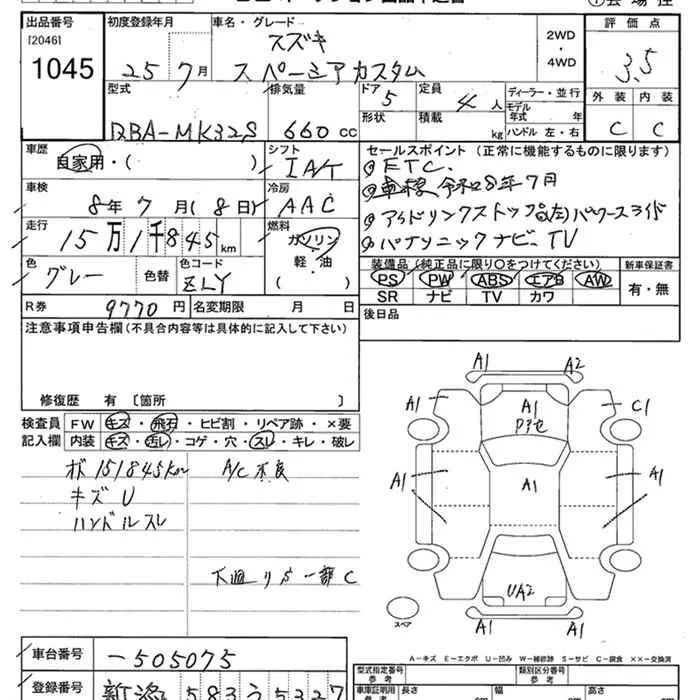 出品番号 初度登録年月 車名・グレード 評価点
[2046] スズキ 2WD
1045 25 7月 スペーシアカスタム ・ 3.5
4WD
型式 排気量 ドア 5 定員 4人 ディーラー・並行 外装 内装
DBA-MK32S 660cc 形状 積載 kg モデル年式 年式 C C
ハンドル 左・右
車歴 シフト セールスポイント (正常に機能するものに限ります)
自家用・( ) IA/T ◎ETC.
車検 冷房 ◎車検令和8年7月
8年7月(8日) AAC ◎アイドリングストップ 左パワースライド
走行 燃料 ◎パナソニックナビ、TV
15万1千845km ガソリン
軽・油
色 色替 色コード 装備品(純正品に限り○をつけてください) 新車保証書
グレー ZLY PS PW ABS エアB AW 有・無
SR ナビ TV カワ
R券 9770円 名変期限 月 日 後日品
注意事項申告欄(不具合内容等は具体的に記入して下さい)
修復歴 有 〔箇所 〕
検査員 FW キズ・飛石・ヒビ割・リペア跡・×要
記入欄 内装 キズ・汚レ・コゲ・穴・スレ・キレ・破レ
151845km A/C不良
キズ U
ハンドルスレ
下廻りサビ一部C
A1 A2
A1 A1 C1
A1 A1 A1
UA2
A1 A1
スペア
A-キズ E-エクボ U-凹み W-補修跡 S-サビ C-腐食 ××-交換済
車台番号 -505075 型式指定番号 参考 類別区分番号 参考
登録番号 新潟 583う5327 車庫証明用 参考 長さ cm 幅 cm 高さ cm